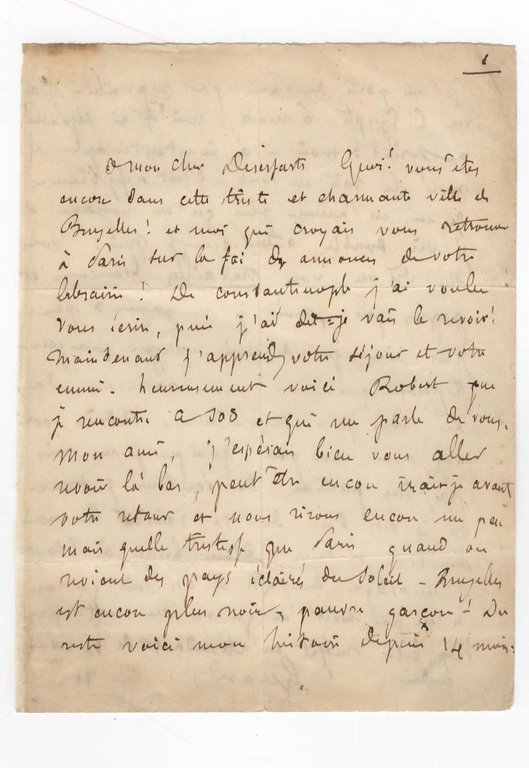 1
O mon cher Desessarts Quoi! vous êtes
encore dans cette triste et charmante ville de
Bruxelles! et moi qui croyais vous retrouver
à Paris sur la foi des annonces de votre
librairie! De Constantinople j'ai voulu
vous écrire, puis j'ai dit = je vais le revoir!
Maintenant j'apprends votre séjour et votre
ennui. heureusement voici Robert que
je rencontre a 50s et qui me parle de vous.
Mon ami, j'espérais bien vous aller
revoir là bas, peut être encore irais-je avant
votre retour et nous rirons encore un peu
mais quelle tristesse que Paris quand on
revient des pays éclairés du Soleil - Bruxelles
est encore plus noir, pauvre garçon! Du
reste voici mon histoire depuis 14 mois: